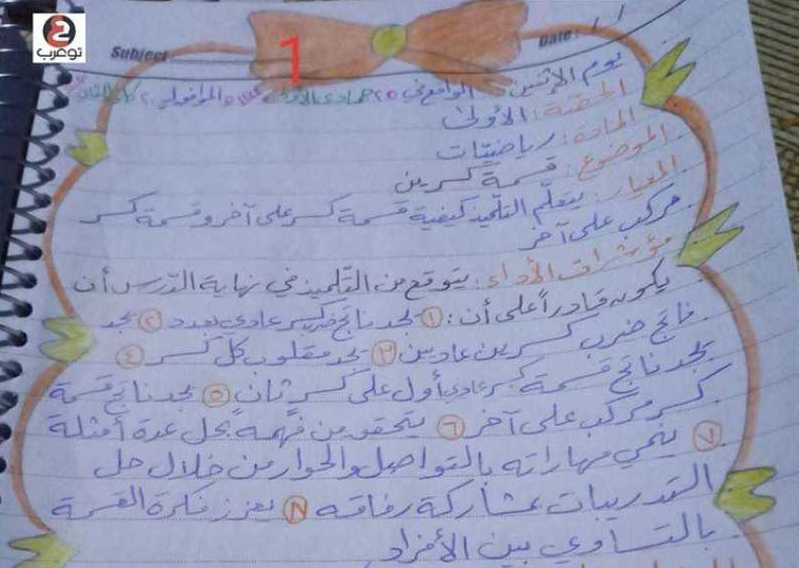 تو عرب
Subject
Date: / /
1
يوم الإثنين الواقع في ٢٥ جمادى الأولى الموافق ل ٢٠ كانون الثاني
الحصة: الأولى
المادة: رياضيّات
الموضوع: قسمة كسرين
المعيار: يتعلّم التلميذ كيفية قسمة كسر على آخر وقسمة كسر
مركب على آخر
مؤشرات الأداء: يتوقع من التلميذ في نهاية الدرس أن
يكون قادراً على أن: ١ يجد ناتج ضرب كسر عادي بعدد ٢ يجد
ناتج ضرب كسرين عاديين ٣ يجد مقلوب كل كسر ٤
يجد ناتج قسمة كسر عادي أول على كسر ثان ٥ يجد ناتج قسمة
كسر مركب على آخر ٦ يتحقق من فهمه بحل عدة أمثلة
٧ ينمي مهاراته بالتواصل والحوار من خلال حل
التدريبات بمشاركة رفاقه ٨ يعزز فكرة القسمة
بالتساوي بين الأفراد